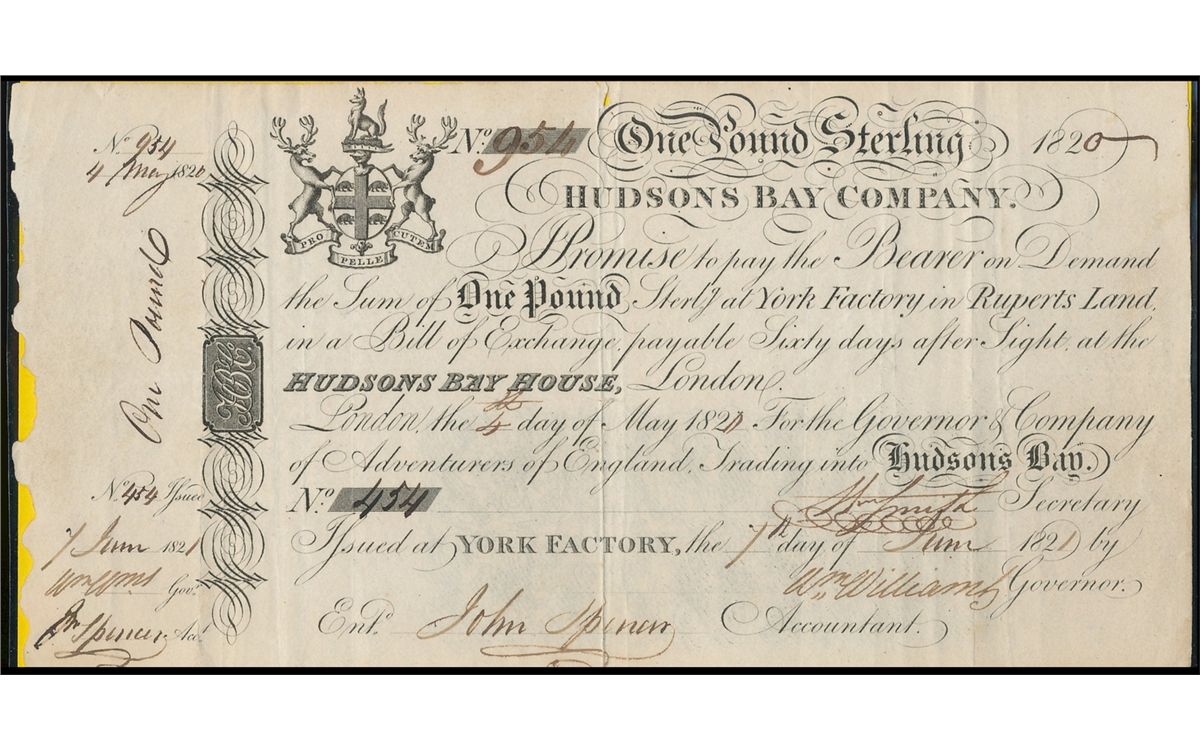 No. 954
4 May 1820
One Pound
No. 454 Issued
7 June 1821
Wm Wms Govr.
Jn Spencer Acct.
HBC
PRO PELLE CUTEM
No. 954 One Pound Sterling 1820
HUDSONS BAY COMPANY.
I Promise to pay the Bearer on Demand
the Sum of One Pound Sterlg. at York Factory in Ruperts Land,
in a Bill of Exchange, payable Sixty days after Sight, at the
HUDSONS BAY HOUSE, London.
London, the 4th day of May 1820 For the Governor & Company
of Adventurers of England, Trading into Hudsons Bay.
No. 454 Wm Smith Secretary
Issued at YORK FACTORY, the 7th day of June 1821 by
Wm Williams Governor.
Entd. John Spencer Accountant.